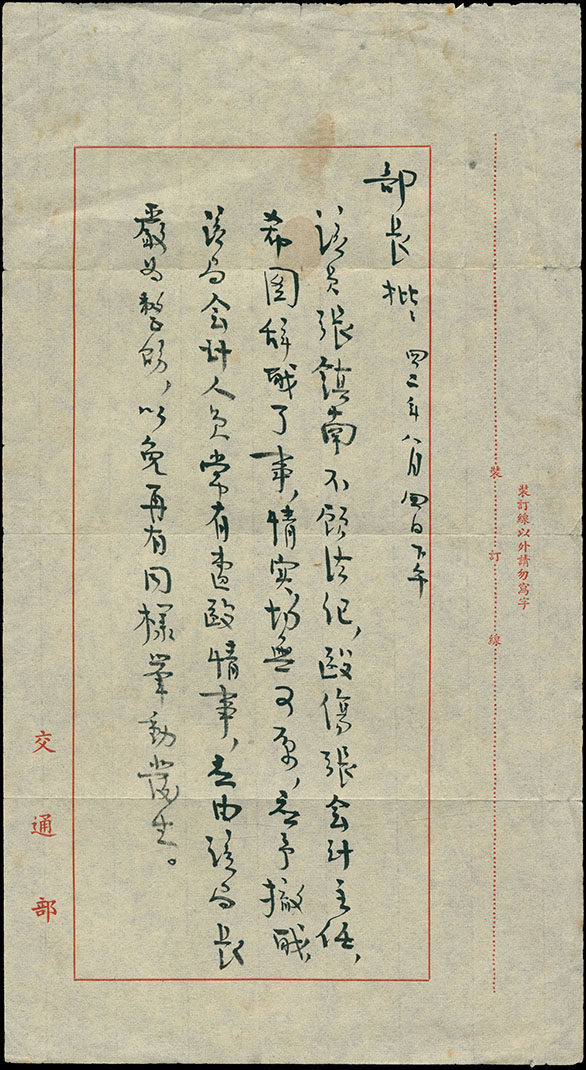 裝訂線以外請勿寫字
裝訂線
部長批: 四二年八月四日下午
該員張鎮南不顧法紀,毆傷張会計主任,
希图辞職了事,情实切無可原,应予撤職,
該局会計人员常有遭毆情事,应由該局長
嚴为整飭,以免再有同樣举動發生。
交通部